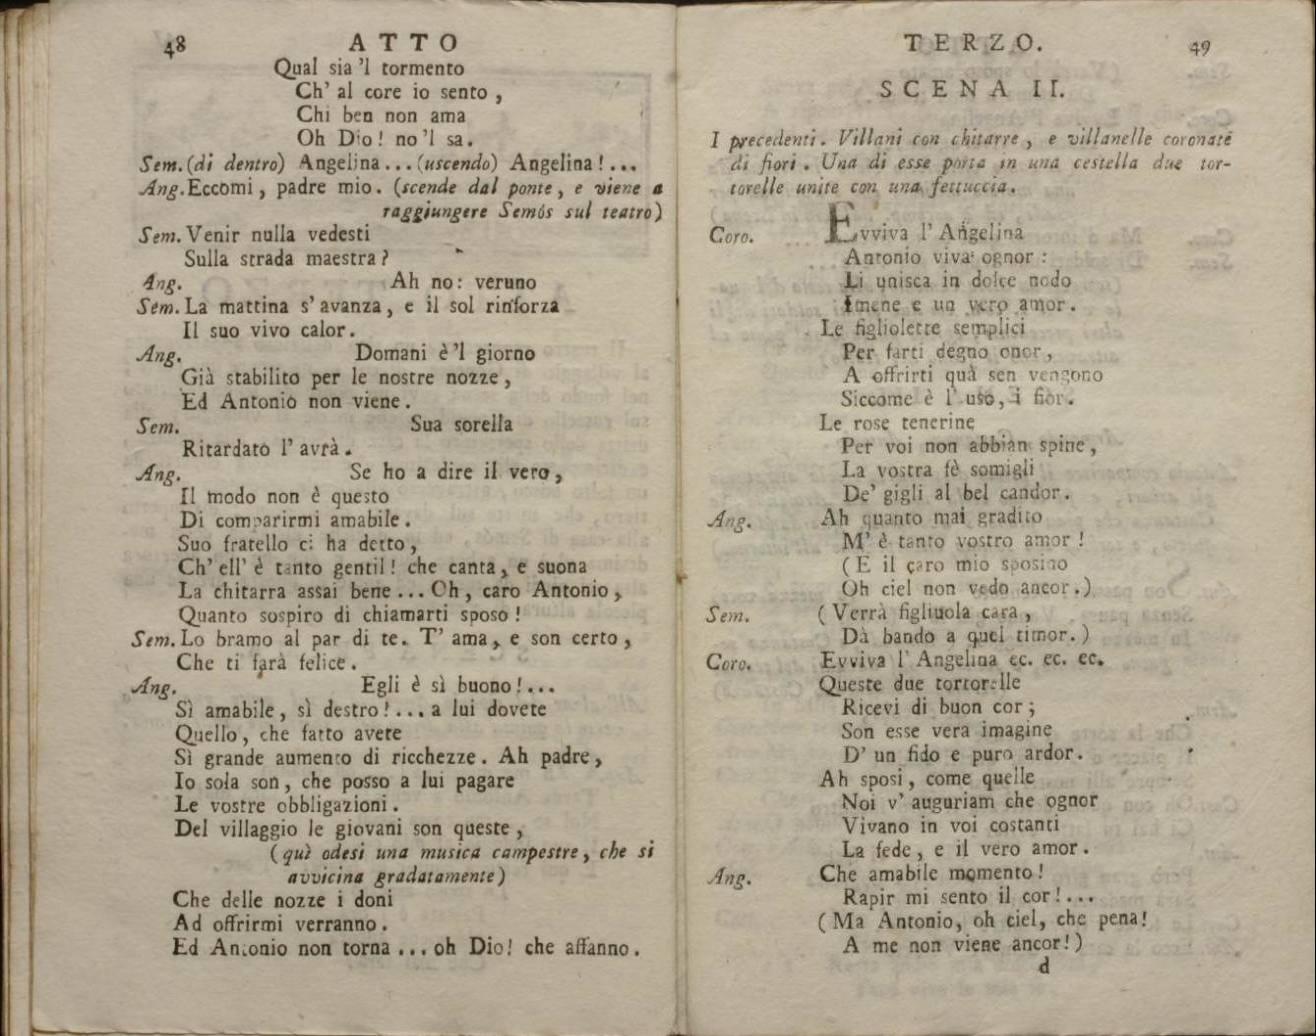 48 ATTO
Qual sia 'l tormento
Ch' al core io sento ,
Chi ben non ama
Oh Dio! no 'l sa.
Sem. (di dentro) Angelina... (uscendo) Angelina!...
Ang. Eccomi, padre mio. (scende dal ponte, e viene a
raggiungere Semós sul teatro)
Sem. Venir nulla vedesti
Sulla strada maestra?
Ang. Ah no: veruno
Sem. La mattina s' avanza, e il sol rinforza
Il suo vivo calor.
Ang. Domani è 'l giorno
Già stabilito per le nostre nozze,
Ed Antonio non viene.
Sem. Sua sorella
Ritardato l' avrà.
Ang. Se ho a dire il vero,
Il modo non è questo
Di comparirmi amabile.
Suo fratello ci ha detto,
Ch' ell' è tanto gentil! che canta, e suona
La chitarra assai bene... Oh, caro Antonio,
Quanto sospiro di chiamarti sposo!
Sem. Lo bramo al par di te. T' ama, e son certo,
Che ti farà felice.
Ang. Egli è sì buono!...
Sì amabile, sì destro!... a lui dovete
Quello, che fatto avete
Sì grande aumento di ricchezze. Ah padre,
Io sola son, che posso a lui pagare
Le vostre obbligazioni.
Del villaggio le giovani son queste,
(quì odesi una musica campestre, che si
avvicina gradatamente)
Che delle nozze i doni
Ad offrirmi verranno.
Ed Antonio non torna... oh Dio! che affanno.
TERZO. 49
SCENA II.
I precedenti. Villani con chitarre, e villanelle coronate
di fiori. Una di esse porta in una cestella due tor-
torelle unite con una fettuccia.
Coro. Evviva l' Angelina
Antonio viva ognor:
Li unisca in dolce nodo
Imene e un vero amor.
Le figliolette semplici
Per farti degno onor,
A offrirti quà sen vengono
Siccome è l' uso, i fior.
Le rose tenerine
Per voi non abbian spine,
La vostra fè somigli
De' gigli al bel candor.
Ang. Ah quanto mai gradito
M' è tanto vostro amor!
(E il caro mio sposino
Oh ciel non vedo ancor.)
Sem. (Verrà figliuola cara,
Dà bando a quel timor.)
Coro. Evviva l' Angelina ec. ec. ec.
Queste due tortorelle
Ricevi di buon cor;
Son esse vera imagine
D' un fido e puro ardor.
Ah sposi, come quelle
Noi v' auguriam che ognor
Vivano in voi costanti
La fede, e il vero amor.
Ang. Che amabile momento!
Rapir mi sento il cor!...
(Ma Antonio, oh ciel, che pena!
A me non viene ancor!)
d